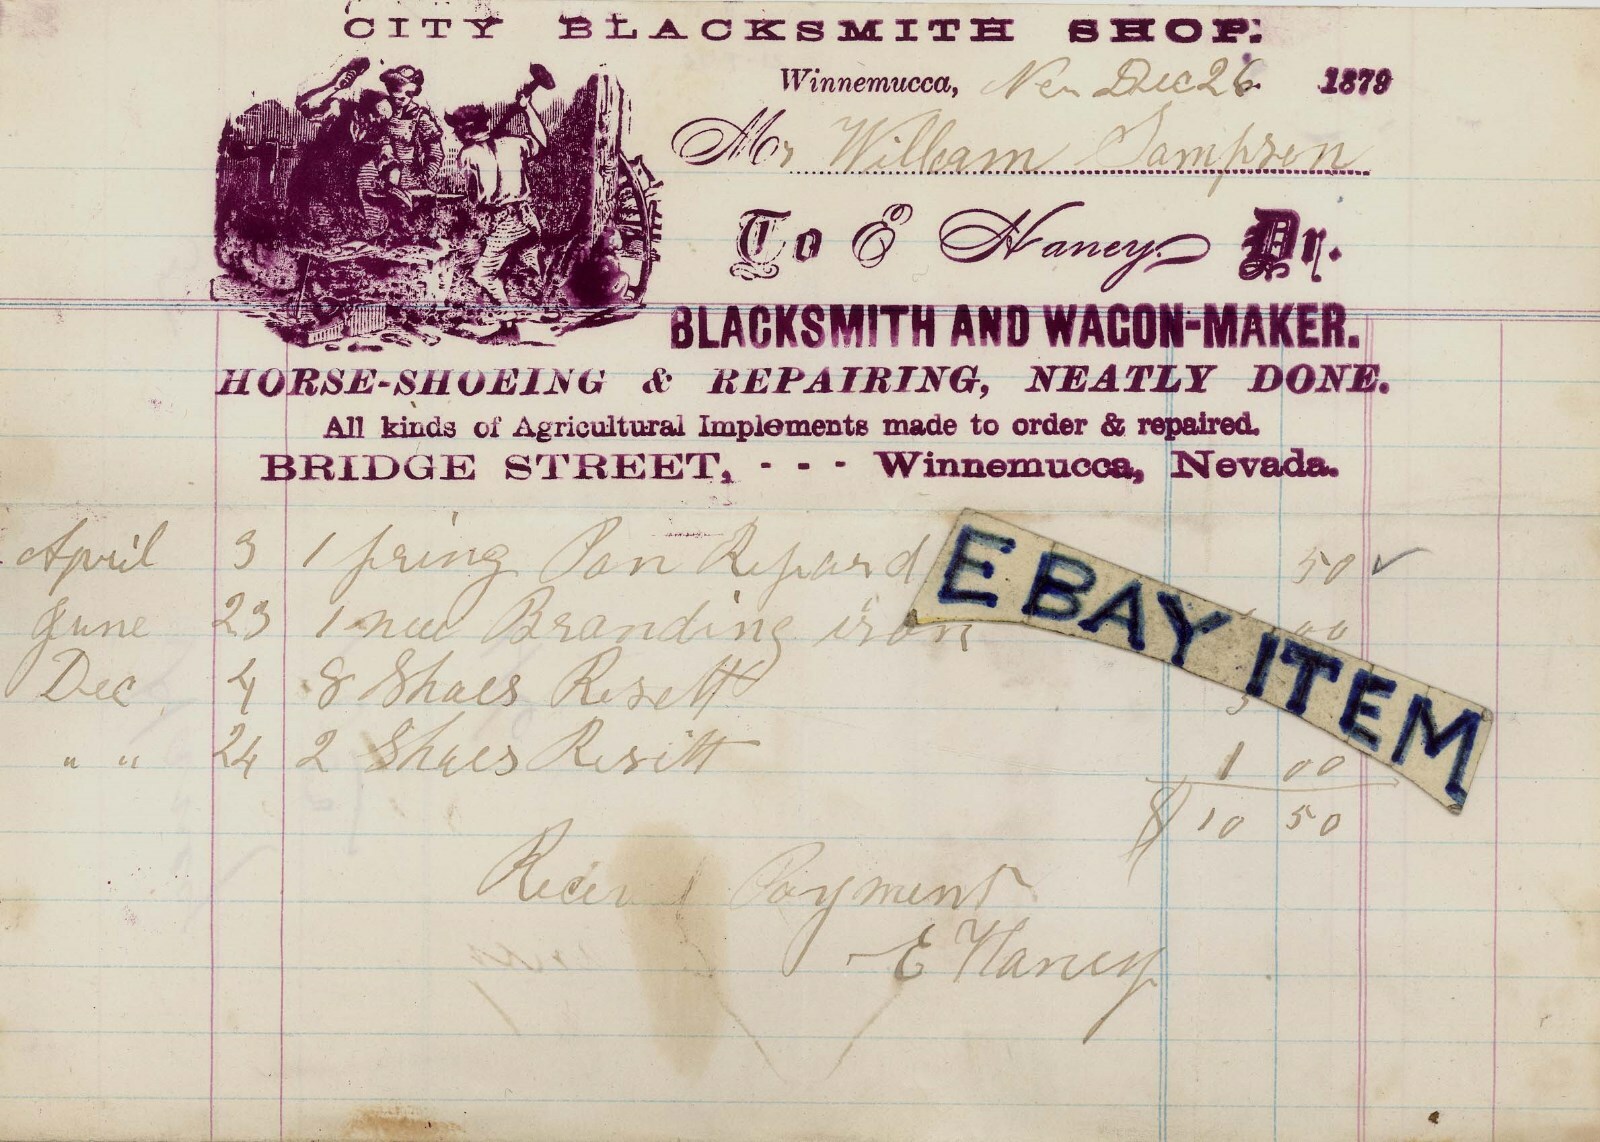 CITY BLACKSMITH SHOP.
Winnemucca, Nev Dec 26 1879
Mr William Sampson
To E Haney. Dr.
BLACKSMITH AND WAGON-MAKER.
HORSE-SHOEING & REPAIRING, NEATLY DONE.
All kinds of Agricultural Implements made to order & repaired.
BRIDGE STREET, - - - Winnemucca, Nevada.
April 3 1 Pan 50 ✓
June 23 1 new Branding iron 00
Dec 4 8 Shoes Resett
" " 24 2 Shoes Resitt 1 00
$ 10 50
Payment
E Haney
EBAY ITEM